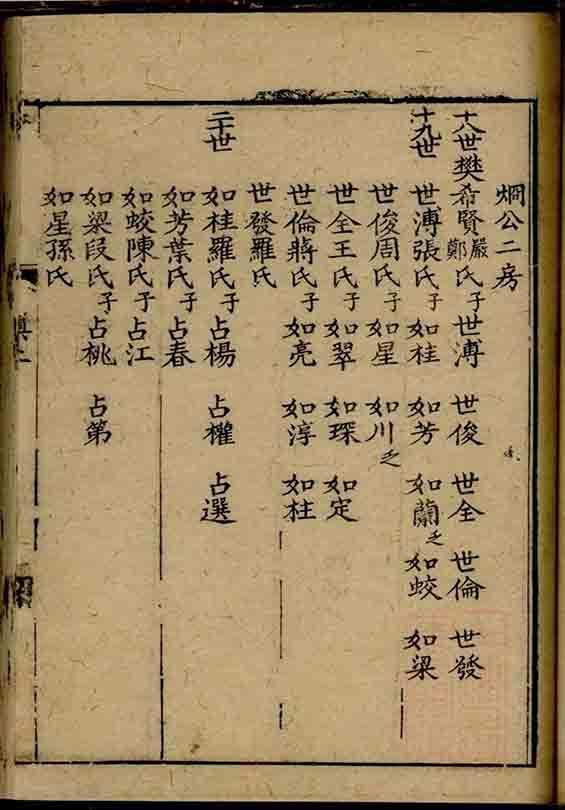 烱公二房
十八世樊希賢嚴鄭氏子世溥 世俊 世全 世倫 世發
十九世 世溥張氏子如桂 如芳 如蘭乏 如蛟 如梁
世俊周氏子如星 如川乏
世全王氏子如翠 如琛 如定
世倫蔣氏子如亮 如淳 如柱
世發羅氏
二十世 如桂羅氏子占楊 占權 占選
如芳葉氏子占春
如蛟陳氏子占江
如梁段氏子占桃 占第
如星孫氏